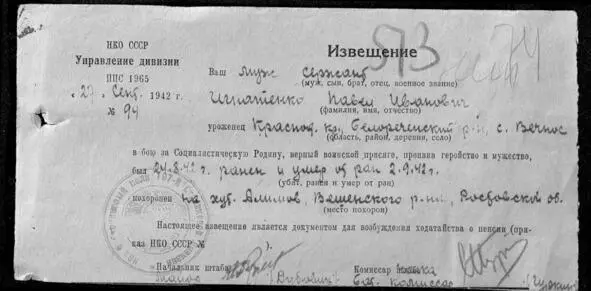 НКО СССР
Управление дивизии
ППС 1965
„27" Сент. 1942 г.
№ 94
573
Извещение
Ваш муж сержант
(муж, сын, брат, отец, военное звание)
Игнатенко Павел Иванович
(фамилия, имя, отчество)
уроженец Краснод. кр. Белореченский р-н, с. Вечное
(область, район, деревня, село)
в бою за Социалистическую Родину, верный воинской присяге, проявив геройство и мужество,
был 24.8.42 г. ранен и умер от ран 2.9.42 г.
(убит, ранен и умер от ран)
похоронен на хут. Алимов, Вешенского р-на, Ростовской об.
(место похорон)
Настоящее извещение является документом для возбуждения ходатайства о пенсии (приказ НКО СССР №
).
Начальник штаба
Комиссар
Бат. комиссар